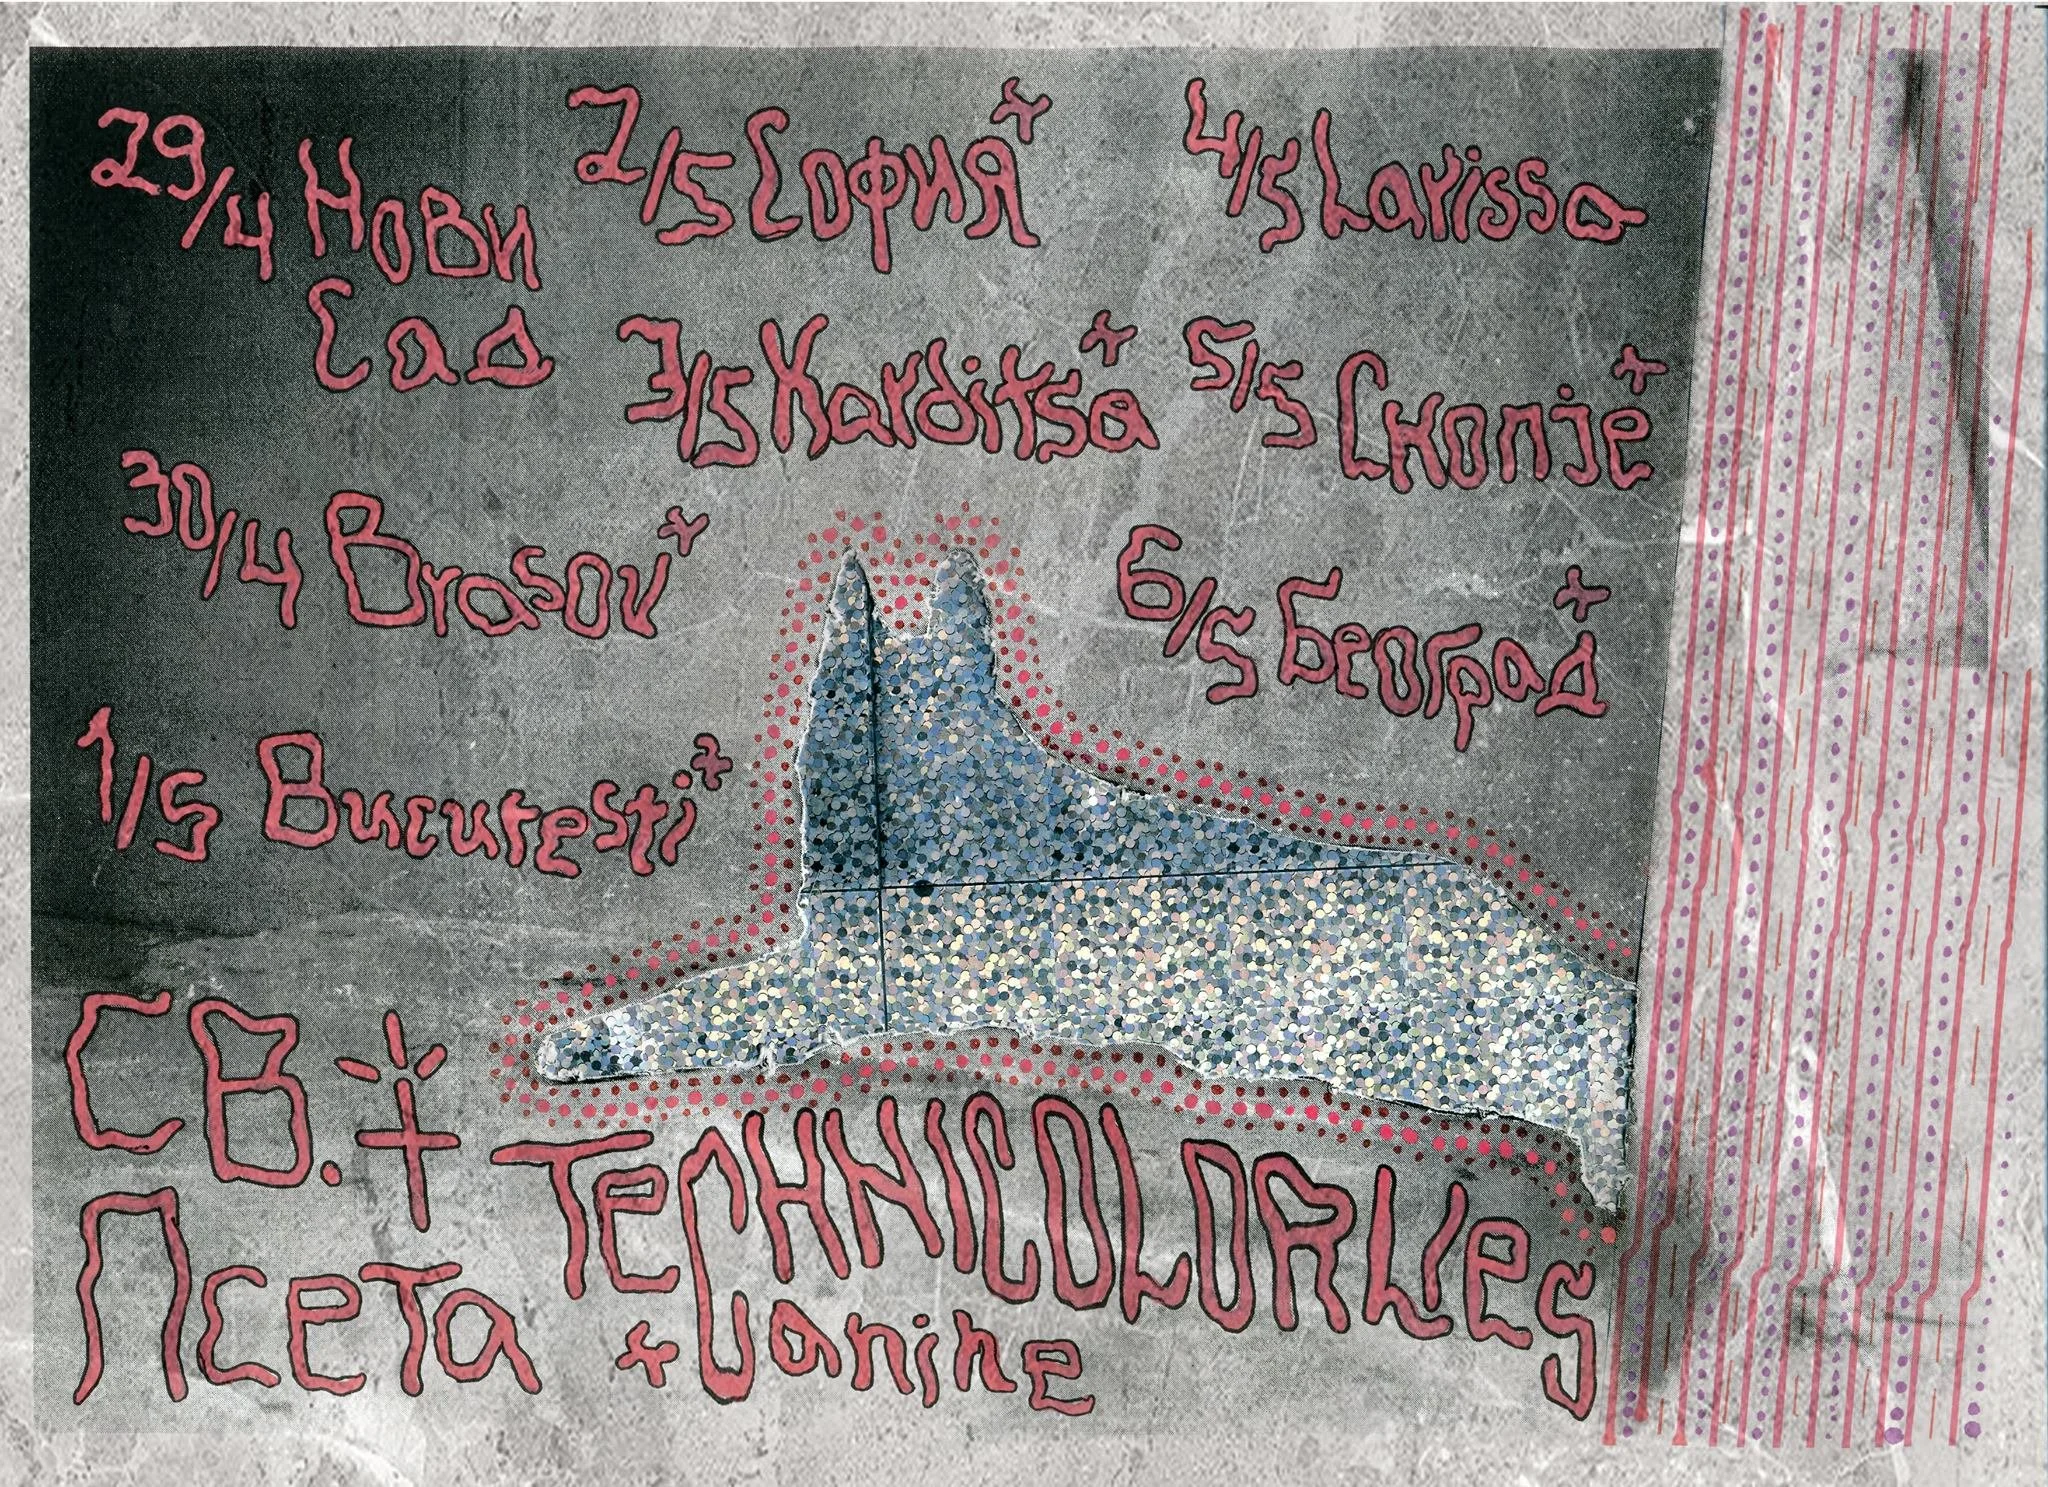 29/4 Нови
Сад
30/4 Brasov+
1/5 Bucureşti+
2/5 София+
3/5 Karditsa+
4/5 Larissa
5/5 Скопје+
6/5 Београд+
СВ.
Псета
TECHNICOLORLIES
+ Janine